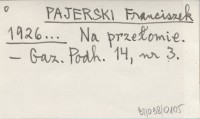 PAJERSKI Franciszek
1926... Na przełomie.
– Gaz. Podh. 14, nr 3.